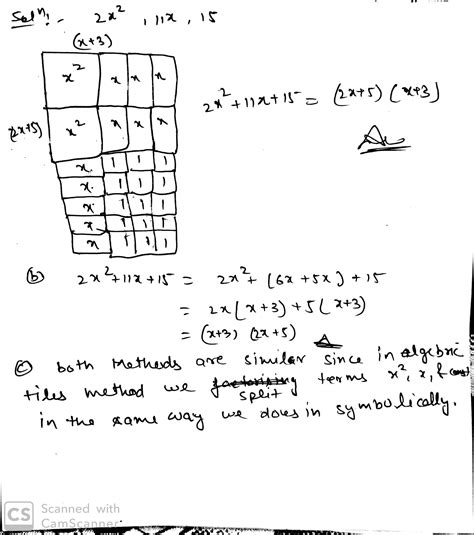 Solⁿ:- 2x² , 11x , 15
(x+3)
x² x x x
(2x+5) x² x x x
x 1 1 1
x. 1 1 1
x. 1 1 1
x. 1 1 1
x 1 1 1
2x²+11x+15 = (2x+5) (x+3)
(b) 2x²+11x+15 = 2x²+ (6x+5x) + 15
= 2x(x+3) +5(x+3)
= (x+3) (2x+5)
(c) both methods are similar since in algebric
tiles method we factorising split terms x², x, & const
in the same way we does in symbolically.
CS Scanned with
CamScanner